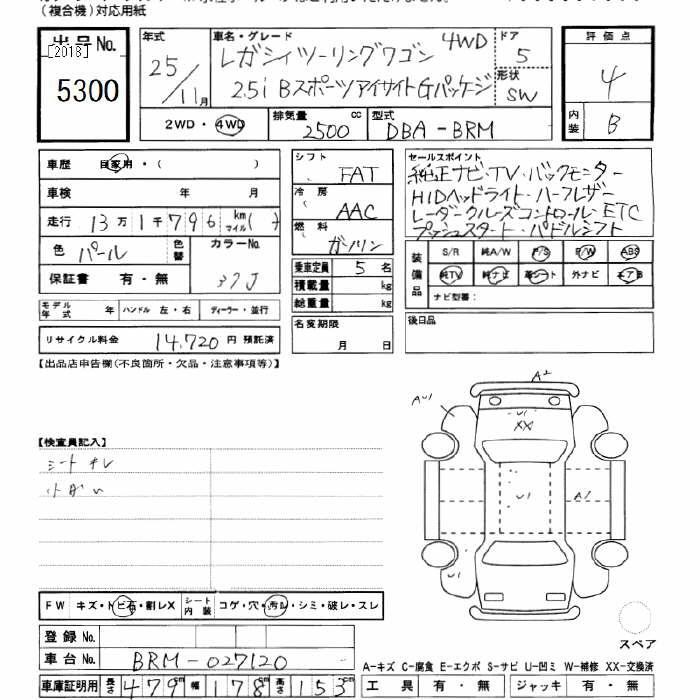 (複合機)対応用紙
出品No.
[2013]
5300
年式
25/11月
車名・グレード
レガシィツーリングワゴン 4WD
2.5i BスポーツアイサイトGパッケージ
ドア
5
形状
SW
2WD・4WD
排気量
2500 cc
型式
DBA-BRM
評価点
4
内装
B
車歴 自家用・( )
車検 年 月
走行 13万1千796 km マイル( )
色 パール 色替 カラーNo. 37J
保証書 有・無
モデル年式 年 ハンドル 左・右 ディーラー・並行
リサイクル料金 14,720円 預託済
シフト
FAT
冷房
AAC
燃料
ガソリン
乗車定員 5名
積載量 kg
総重量 kg
名変期限
月 日
セールスポイント
純正ナビ・TV・バックモニター
HIDヘッドライト・ハーフレザー
レーダークルーズコントロール・ETC
プッシュスタート・パドルシフト
装備品
S/R 純A/W P/S P/W ABS
純TV 純ナビ 革シート 外ナビ エアB
ナビ型番:
後日品
【出品店申告欄(不良箇所・欠品・注意事項等)】
【検査員記入】
シートキレ
小がい
A2
AU1
U1
XX
U1
A1
U1
スペア
FW キズ・トビ石・割レX シート内装 コゲ・穴・汚レ・シミ・破レ・スレ
登録No.
車台No. BRM-027120
車庫証明用 長さ 479cm 幅 178cm 高さ 153cm
A-キズ C-腐食 E-エクボ S-サビ U-凹ミ W-補修 XX-交換済
工具 有・無 ジャッキ 有・無